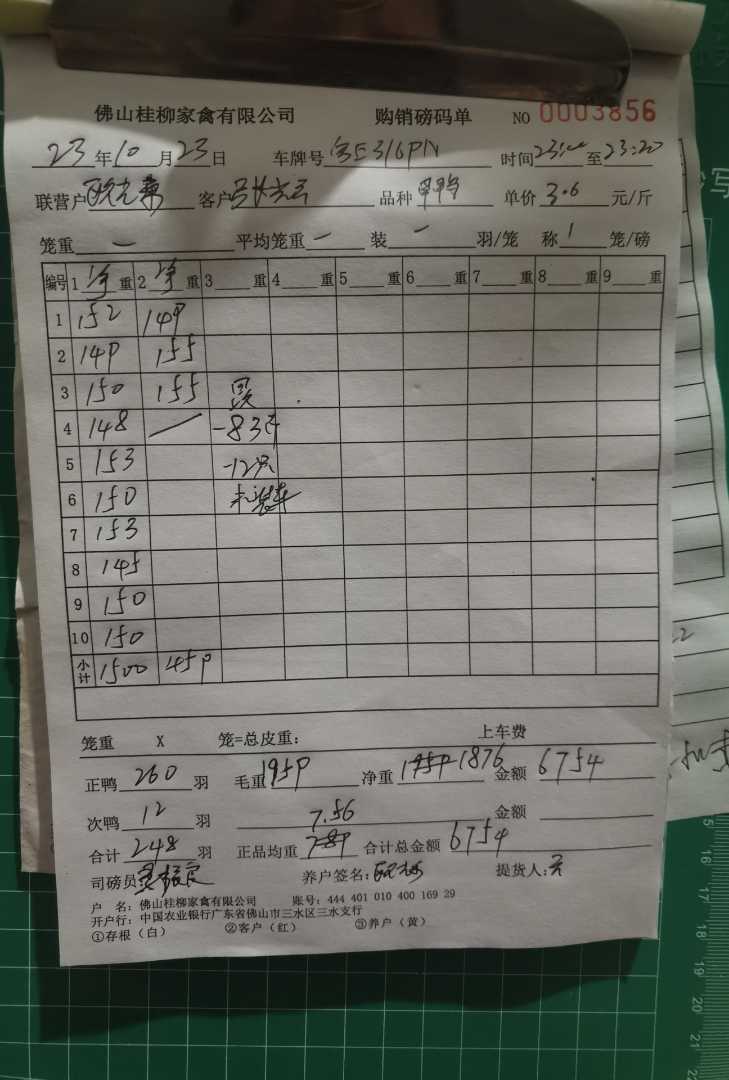 佛山桂柳家禽有限公司 购销磅码单 NO 0003856
23年10月23日 车牌号 时间23: 至23:20
联营户 客户 品种 单价3.6元/斤
笼重 一 平均笼重 一 装 一 羽/笼 称 1 笼/磅
编号 1 净 重 2 净 重 3 重 4 重 5 重 6 重 7 重 8 重 9 重
1 152 149
2 149 155
3 150 155
4 148 -83斤
5 153 -12只
6 150 未装车
7 153
8 145
9 150
10 150
小计 1500 459
笼重 X 笼=总皮重: 上车费
正鸭 260 羽 毛重 1959 净重 1959 1876 金额 6754
次鸭 12 羽 7.56 金额
合计 248 羽 正品均重 合计总金额 6754
司磅员: 养户签名: 提货人:
户 名: 佛山桂柳家禽有限公司 账号: 444 401 010 400 169 29
开户行: 中国农业银行广东省佛山市三水区三水支行
①存根（白） ②客户（红） ③养户（黄）